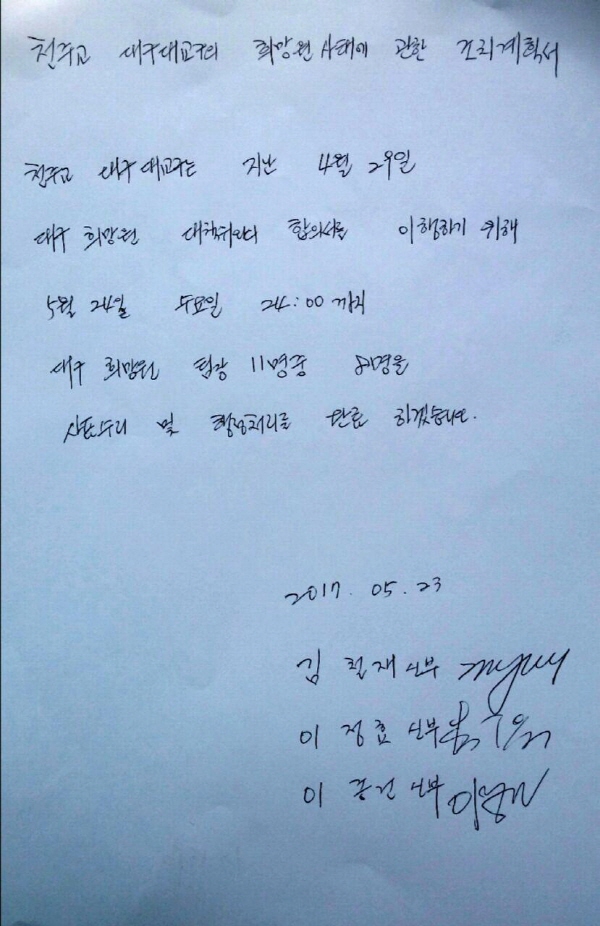 천주교 대구대교구의 희망원 사태에 관한 조치계획서
천주교 대구대교구는 지난 4월 29일
대구 희망원 대책위와의 합의서를 이행하기 위해
5월 24일 수요일 24:00 까지
대구 희망원 팀장 11명중 8명을
사표수리 및 행정처리를 완료 하겠습니다.
2017. 05. 23
김 철재 신부
이 정효 신부
이 신부